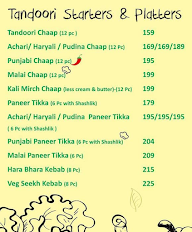 Tandoori Starters & Platters
Tandoori Chaap (12 pc ) 159
Achari/ Haryali / Pudina Chaap (12 Pc) 169/169/189
Punjabi Chaap (12 pc) 195
Malai Chaap (12 pc) 199
Kali Mirch Chaap (less cream & butter)-(12 Pc) 199
Paneer Tikka (6 Pc with Shashlik) 179
Achari/ Haryali / Pudina Paneer Tikka 195/195/195
( 6 Pc with Shashlik )
Punjabi Paneer Tikka (6 Pc with Shashlik) 204
Malai Paneer Tikka (6 Pc) 209
Hara Bhara Kebab (8 Pc) 215
Veg Seekh Kebab (8 Pc) 225